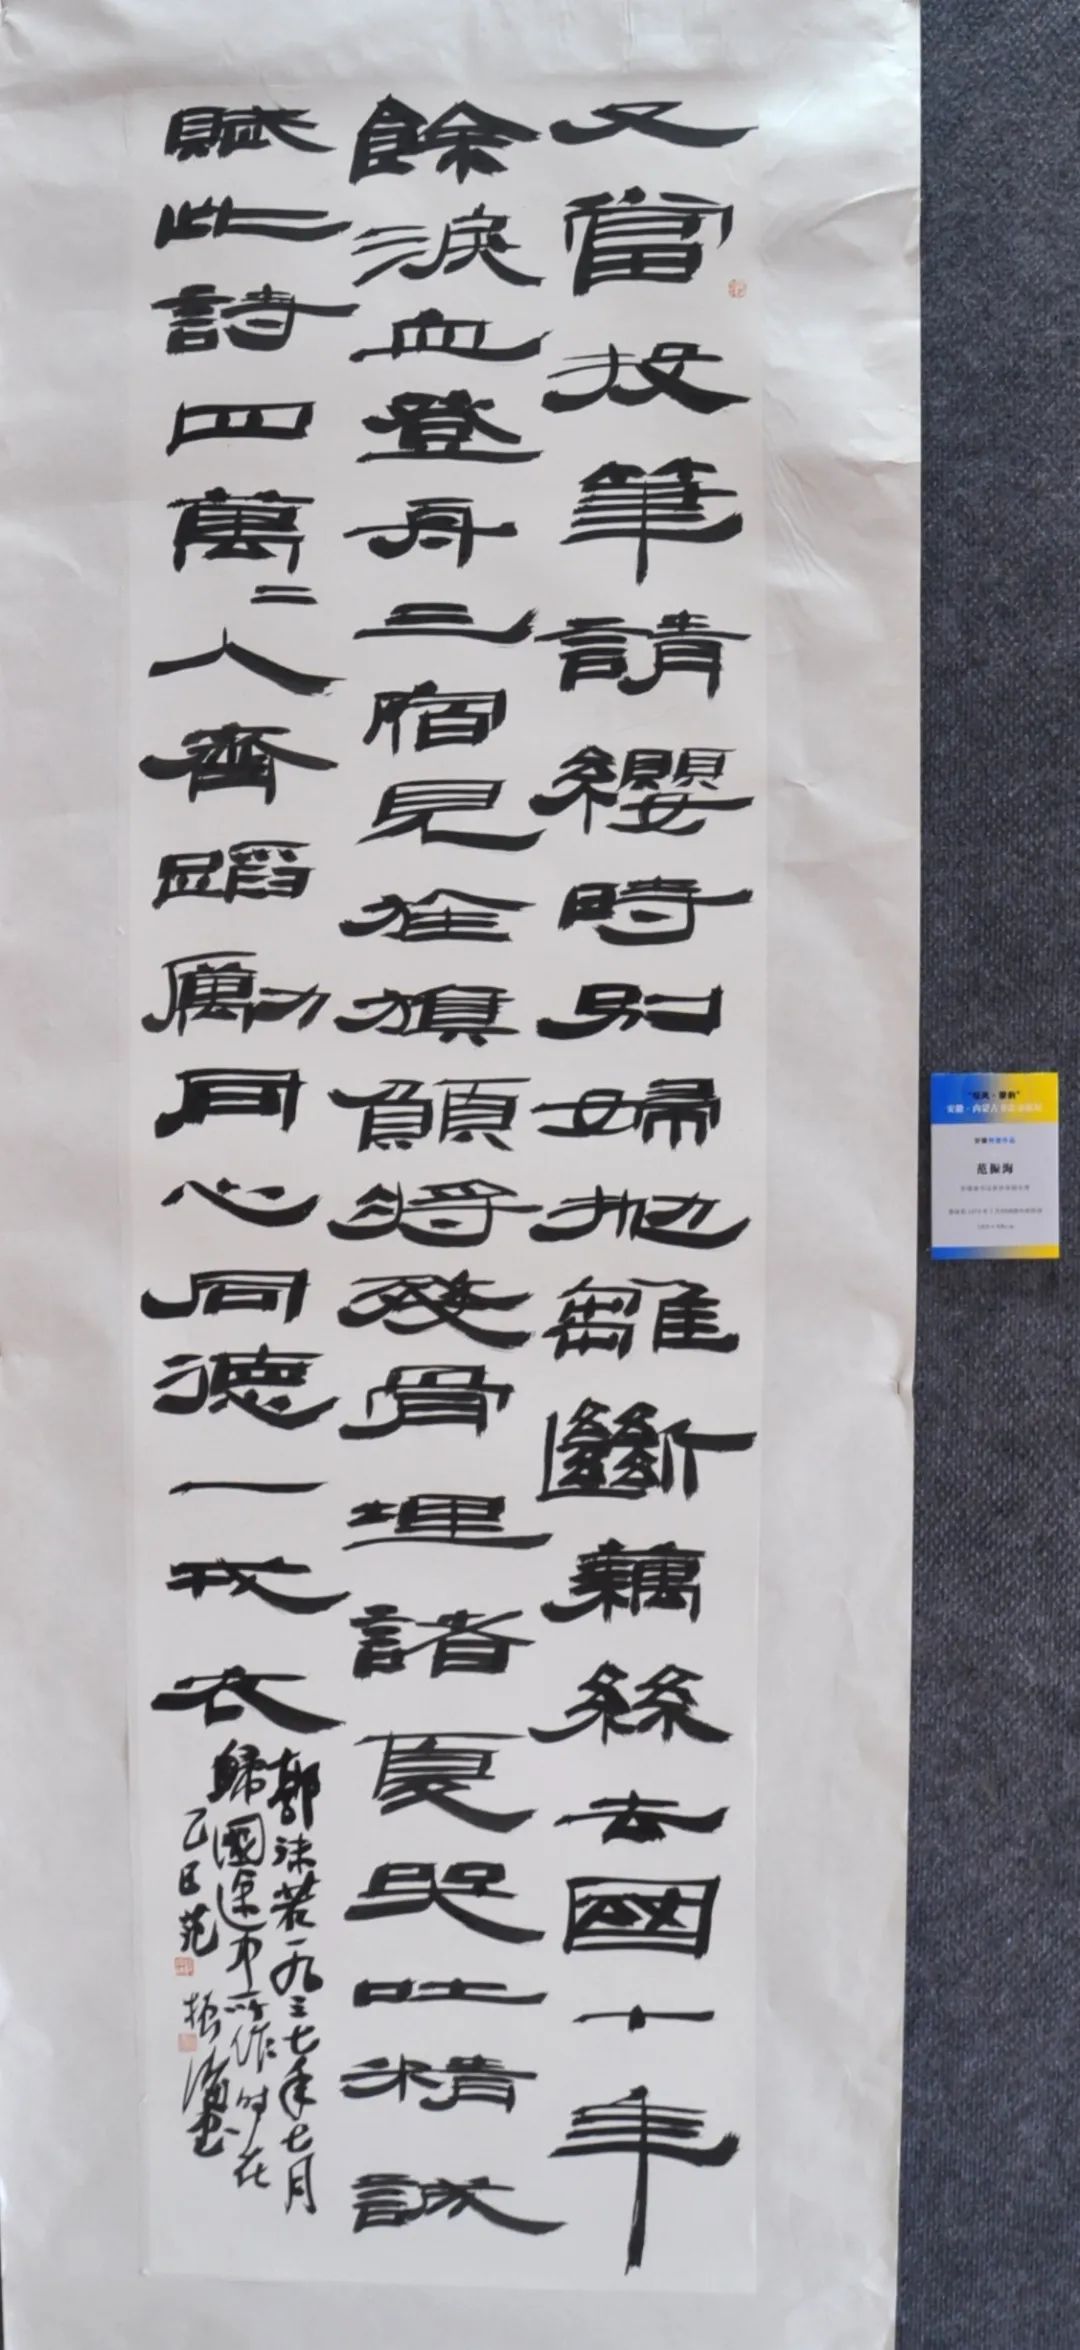 又當投筆請纓時別婦抛雛斷藕絲去國十年
餘淚血登舟三宿見旌旗願將殘骨埋諸夏哭吐精誠
賦此詩四萬二人齊蹈厲同心同德一戎衣
郭沫若一九三七年七月
歸國途中所作时在
乙巳范振海书
范振海